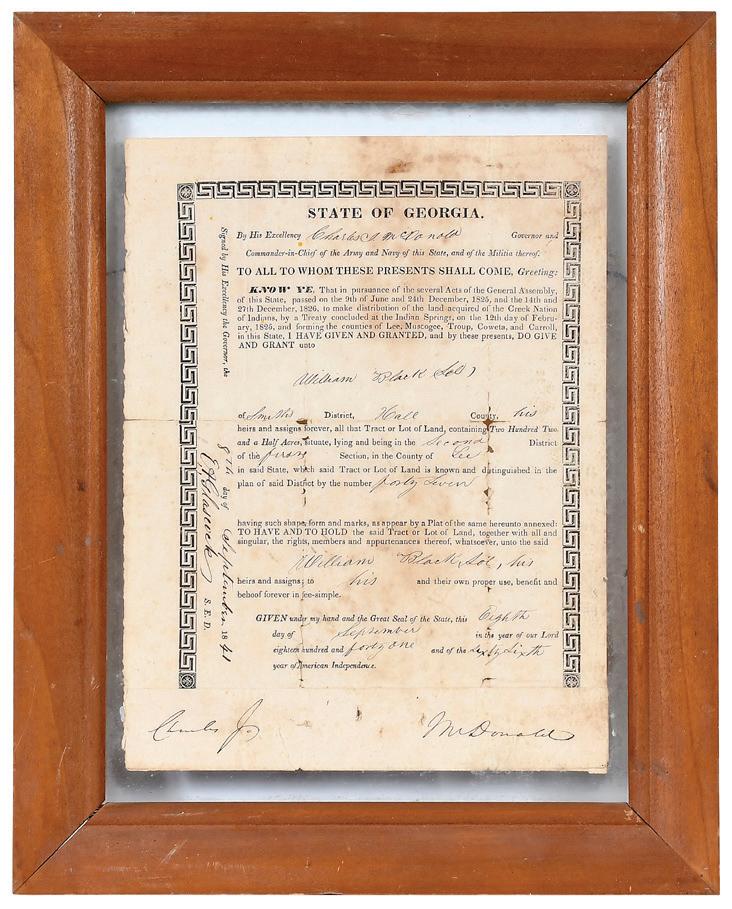 STATE OF GEORGIA.
By His Excellency Charles J McDonald Governor and
Commander-in-Chief of the Army and Navy of this State, and of the Militia thereof.
TO ALL TO WHOM THESE PRESENTS SHALL COME, Greeting:
KNOW YE, That in pursuance of the several Acts of the General Assembly,
of this State, passed on the 9th of June and 24th December, 1825, and the 14th and
27th December, 1826, to make distribution of the land acquired of the Creek Nation
of Indians, by a Treaty concluded at the Indian Springs, on the 12th day of Febru-
ary, 1825, and forming the counties of Lee, Muscogee, Troup, Coweta, and Carroll,
in this State, I HAVE GIVEN AND GRANTED, and by these presents, DO GIVE
AND GRANT unto
William Black Sol,
of Smiths District, Hall County, his
heirs and assigns forever, all that Tract or Lot of Land, containing Two Hundred Two
and a Half Acres, situate, lying and being in the Second District
of the first Section, in the County of Lee
in said State, which said Tract or Lot of Land is known and distinguished in the
plan of said District by the number forty Seven
having such shape, form and marks, as appear by a Plat of the same hereunto annexed:
TO HAVE AND TO HOLD the said Tract or Lot of Land, together with all and
singular, the rights, members and appurtenances thereof, whatsoever, unto the said
William Black Sol, his
heirs and assigns; to his and their own proper use, benefit and
behoof forever in fee-simple.
GIVEN under my hand and the Great Seal of the State, this Eighth
day of September in the year of our Lord
eighteen hundred and forty one and of the Sixty Sixth
year of American Independence.
Signed by His Excellency the Governor, the
8th day of September 1841
S. E. D.
Charles J. McDonald